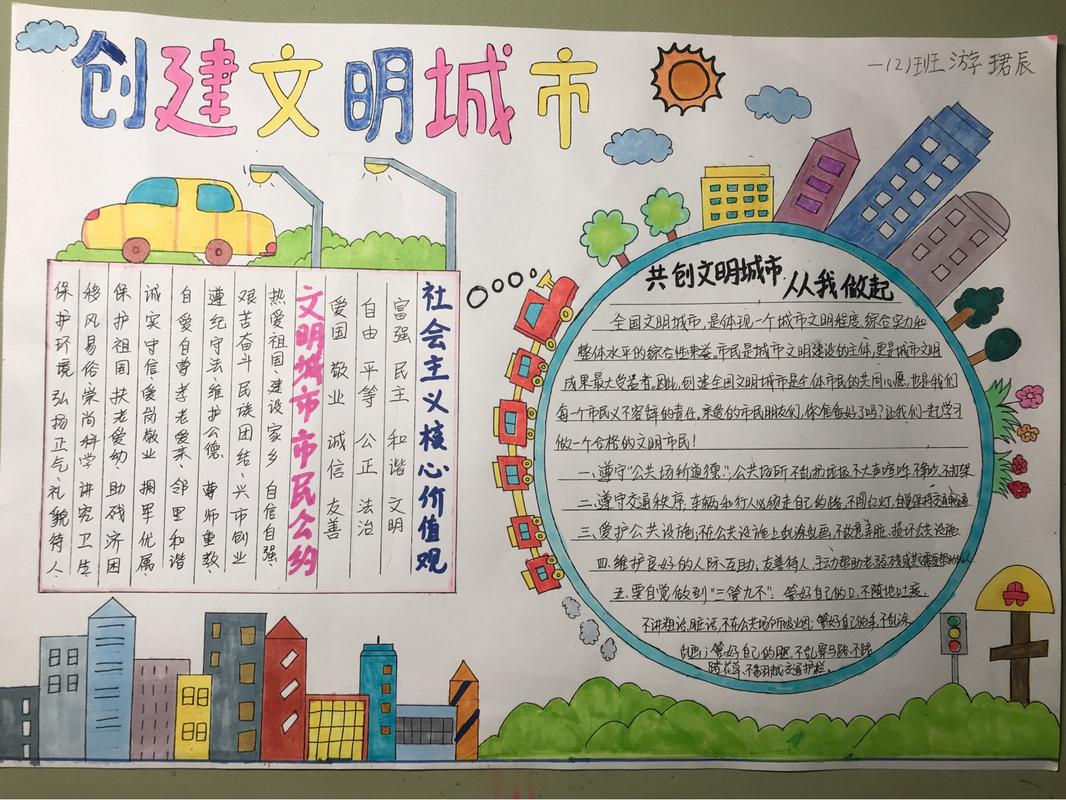 创建文明城市
一(2)班 游珺辰
社会主义核心价值观
富强 民主 和谐 文明
自由 平等 公正 法治
爱国 敬业 诚信 友善
文明城市市民公约
热爱祖国、建设家乡 自信自强、
艰苦奋斗 民族团结、兴市创业
遵纪守法、维护公德、尊师重教、
自爱自尊 孝老爱亲、邻里和谐
诚实守信 爱岗敬业 拥军优属
保护祖国 扶老爱幼、助残济困
移风易俗、崇尚科学 讲究卫生
保护环境 弘扬正气、礼貌待人、
共创文明城市 从我做起
全国文明城市，是体现一个城市文明程度、综合实力和
整体水平的综合性荣誉。市民是城市文明建设的主体，更是城市文明
成果最大受益者。因此，创建全国文明城市是全体市民的共同心愿，也是我们
每一个市民义不容辞的责任。亲爱的市民朋友们，你准备好了吗？让我们一起学习
做一个合格的文明市民！
一、遵守“公共场所道德”：公共场所不乱扔垃圾、不大声喧哗、不争吵、不打架
二、遵守交通秩序，车辆和行人必须走自己的路，不闯红灯，自觉保持交通畅通
三、爱护公共设施；在公共设施上乱涂乱画，不故意弄脏、损坏公共设施
四、维护良好的人际、互助、友善待人，主动帮助老弱、残
五、要自觉做到“三管九不”：管好自己的口，不随地吐痰，
不讲粗话、脏话，不在公共场所吸烟；管好自己的手，不乱涂
乱画；管好自己的腿，不乱穿马路、不踏
踏花草、不翻越交通护栏。